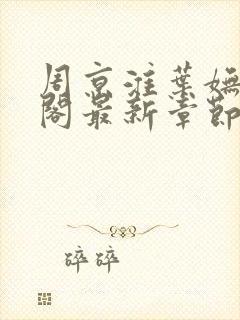 周京淮葉嫵
閣最新章節
碎碎